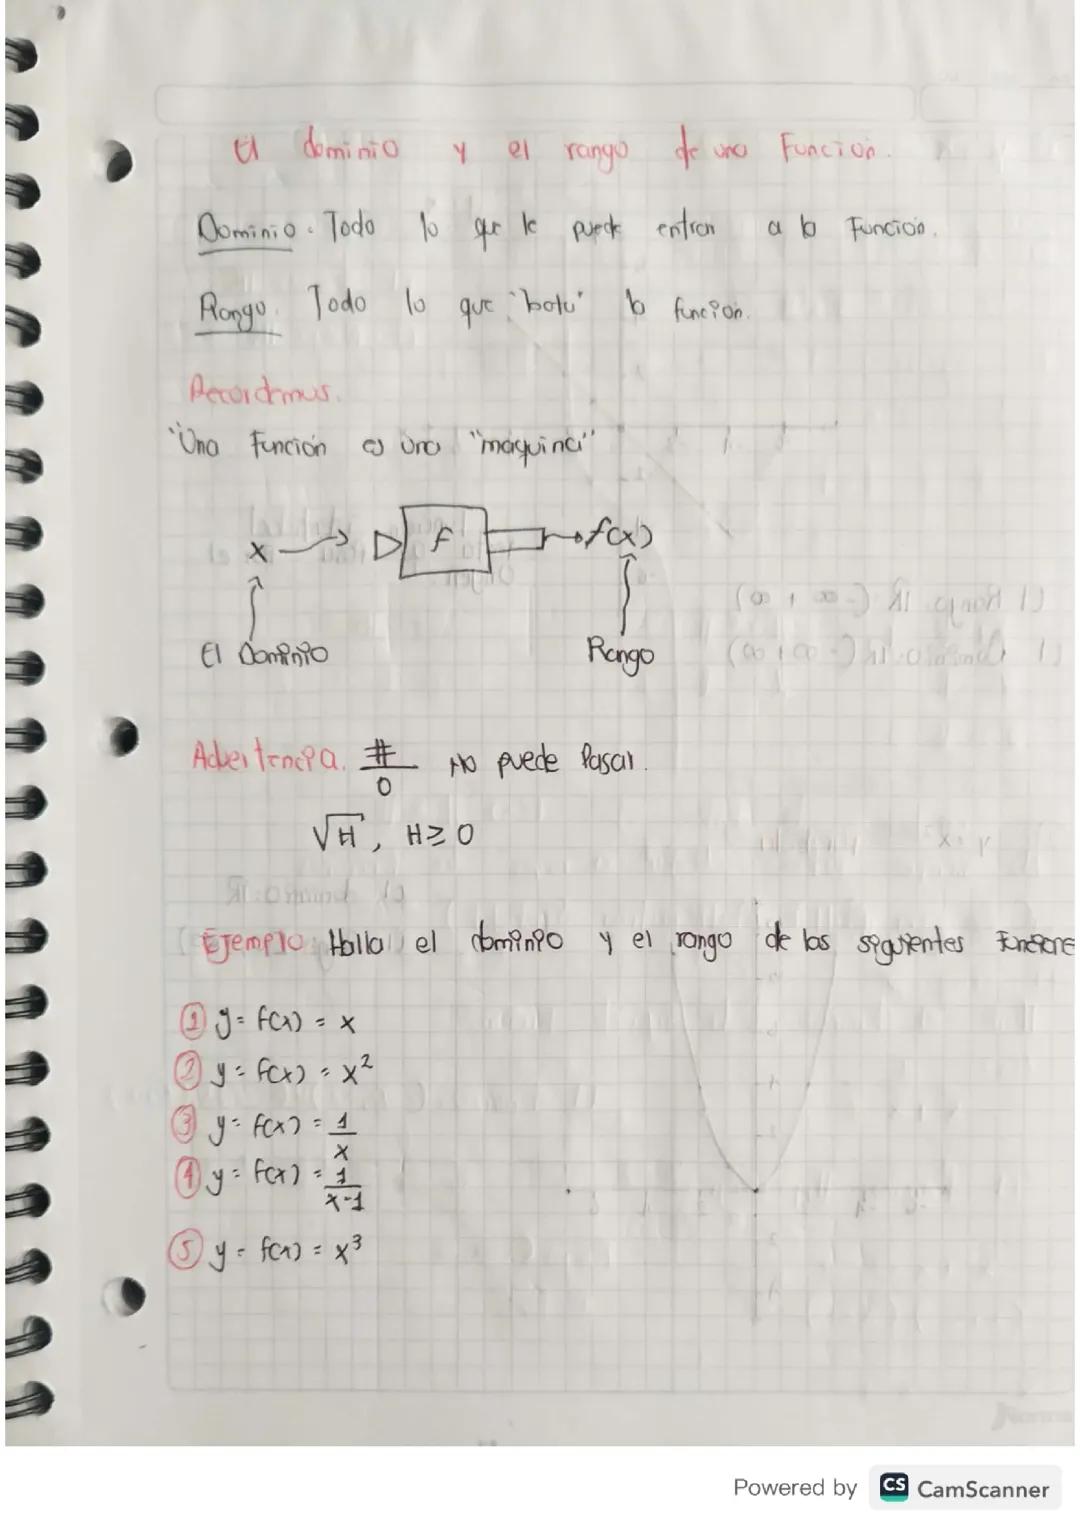 El dominio y el rango de una Función.
Dominio. Todo lo que le puede entrar a la Función.
Rango. Todo lo que "bota" la función.
Recordemos.
"Una Función es una "maquina"
x → f → f(x)
El Dominio Rango
Advertencia. #/0 No puede Pasar.
√H, H≥0
Ejemplo: Halla el dominio y el rango de las siguientes Funcione
1 y = f(x) = x
2 y = f(x) = x²
3 y = f(x) = 1/x
4 y = f(x) = 1/x-1
5 y = f(x) = x³
Powered by CS CamScanner